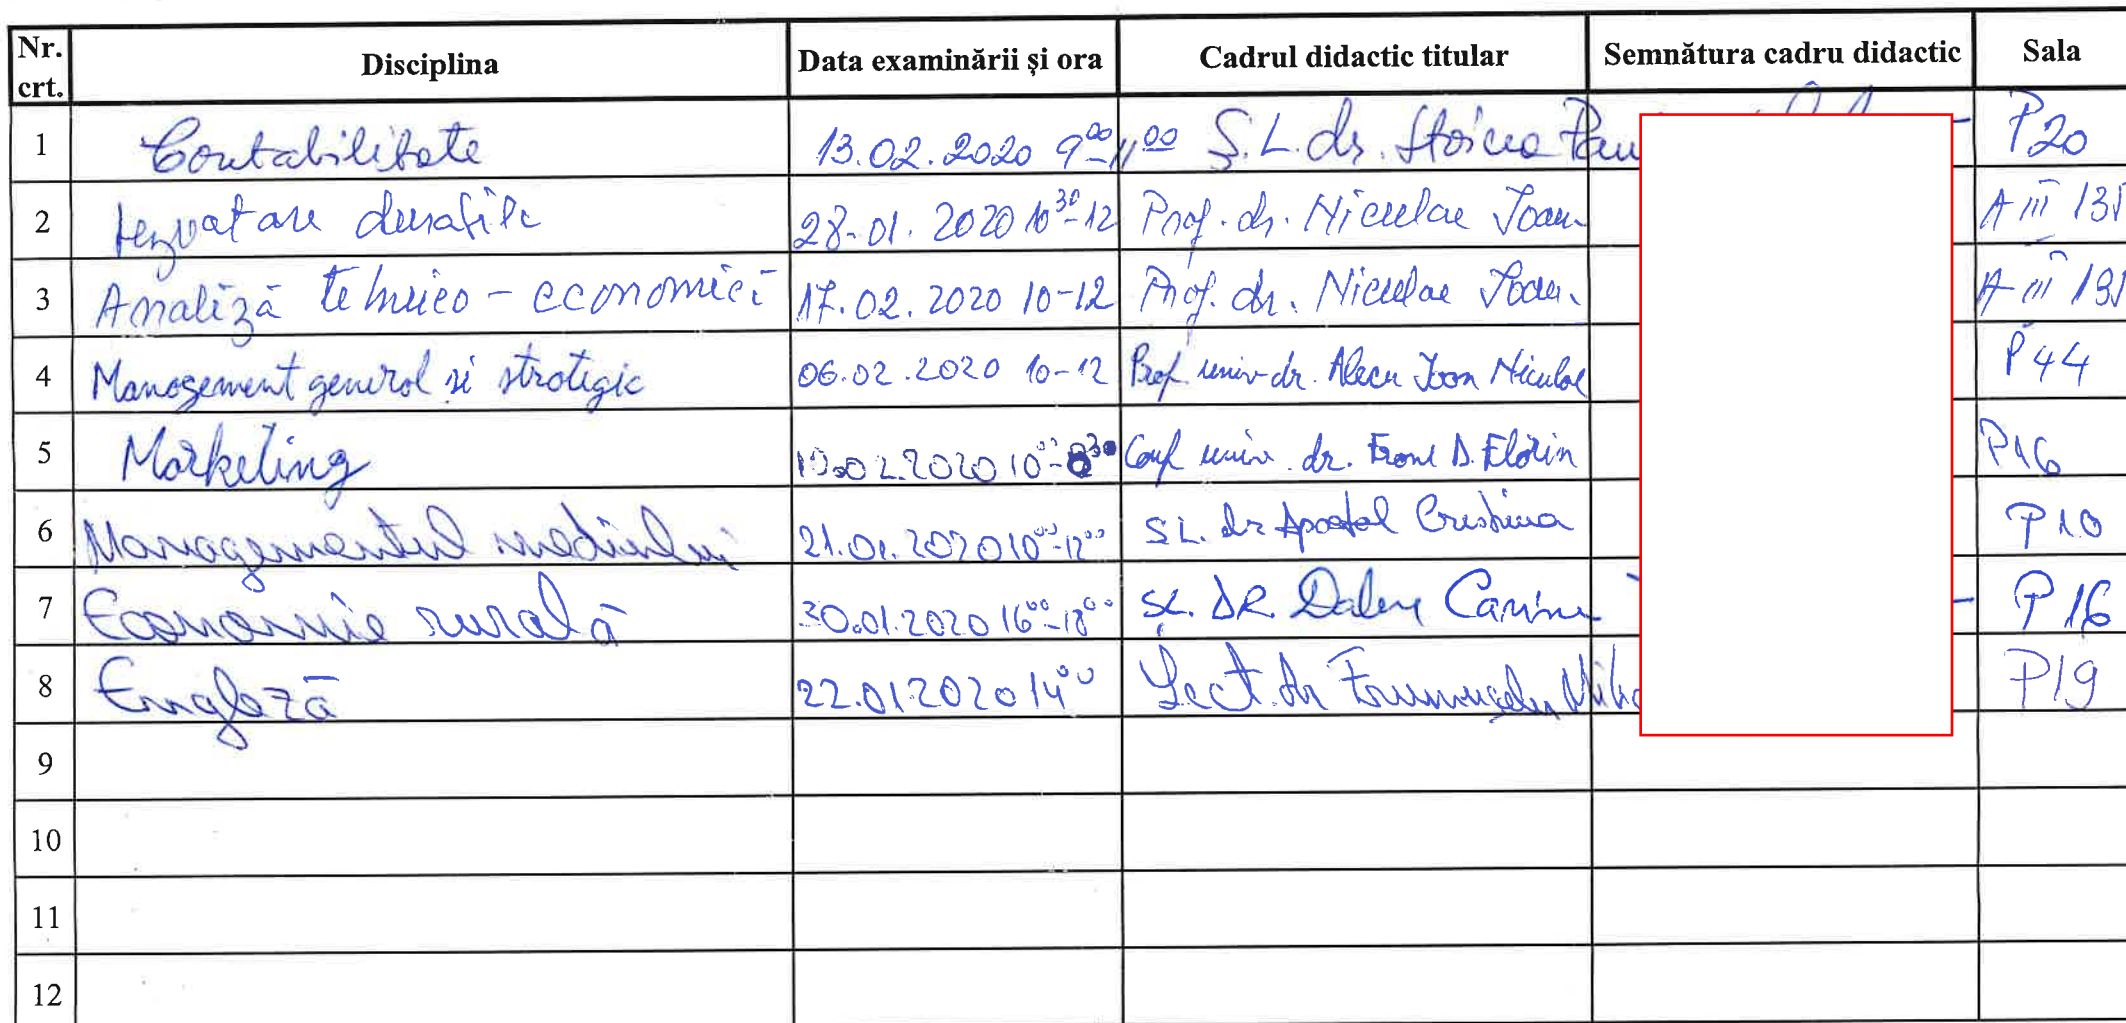 Nr. crt. Disciplina Data examinării și ora Cadrul didactic titular Semnătura cadru didactic Sala
1 Contabilitate 13.02.2020 9⁰⁰-11⁰⁰ Ș.L. dr. Stoicea P20
2 durabilă 28.01.2020 10³⁰-12 Prof. dr. Niculae Ioan A III
3 Analiză tehnico-economică 17.02.2020 10-12 Prof. dr. Niculae Ioan A III
4 Management general și strategic 06.02.2020 10-12 Prof. univ. dr. Alecu Ioan Niculae P44
5 Marketing Conf univ. dr. Florin P16
6 Managementul mediului 21.01.2020 10⁰⁰-12⁰⁰ SL. dr Apostol Cristina P10
7 Economie rurală 30.01.2020 16⁰⁰-18⁰⁰ ȘL. DR P16
8 Engleză 22.01.2020 14⁰⁰ Lect. dr P19
9
10
11
12